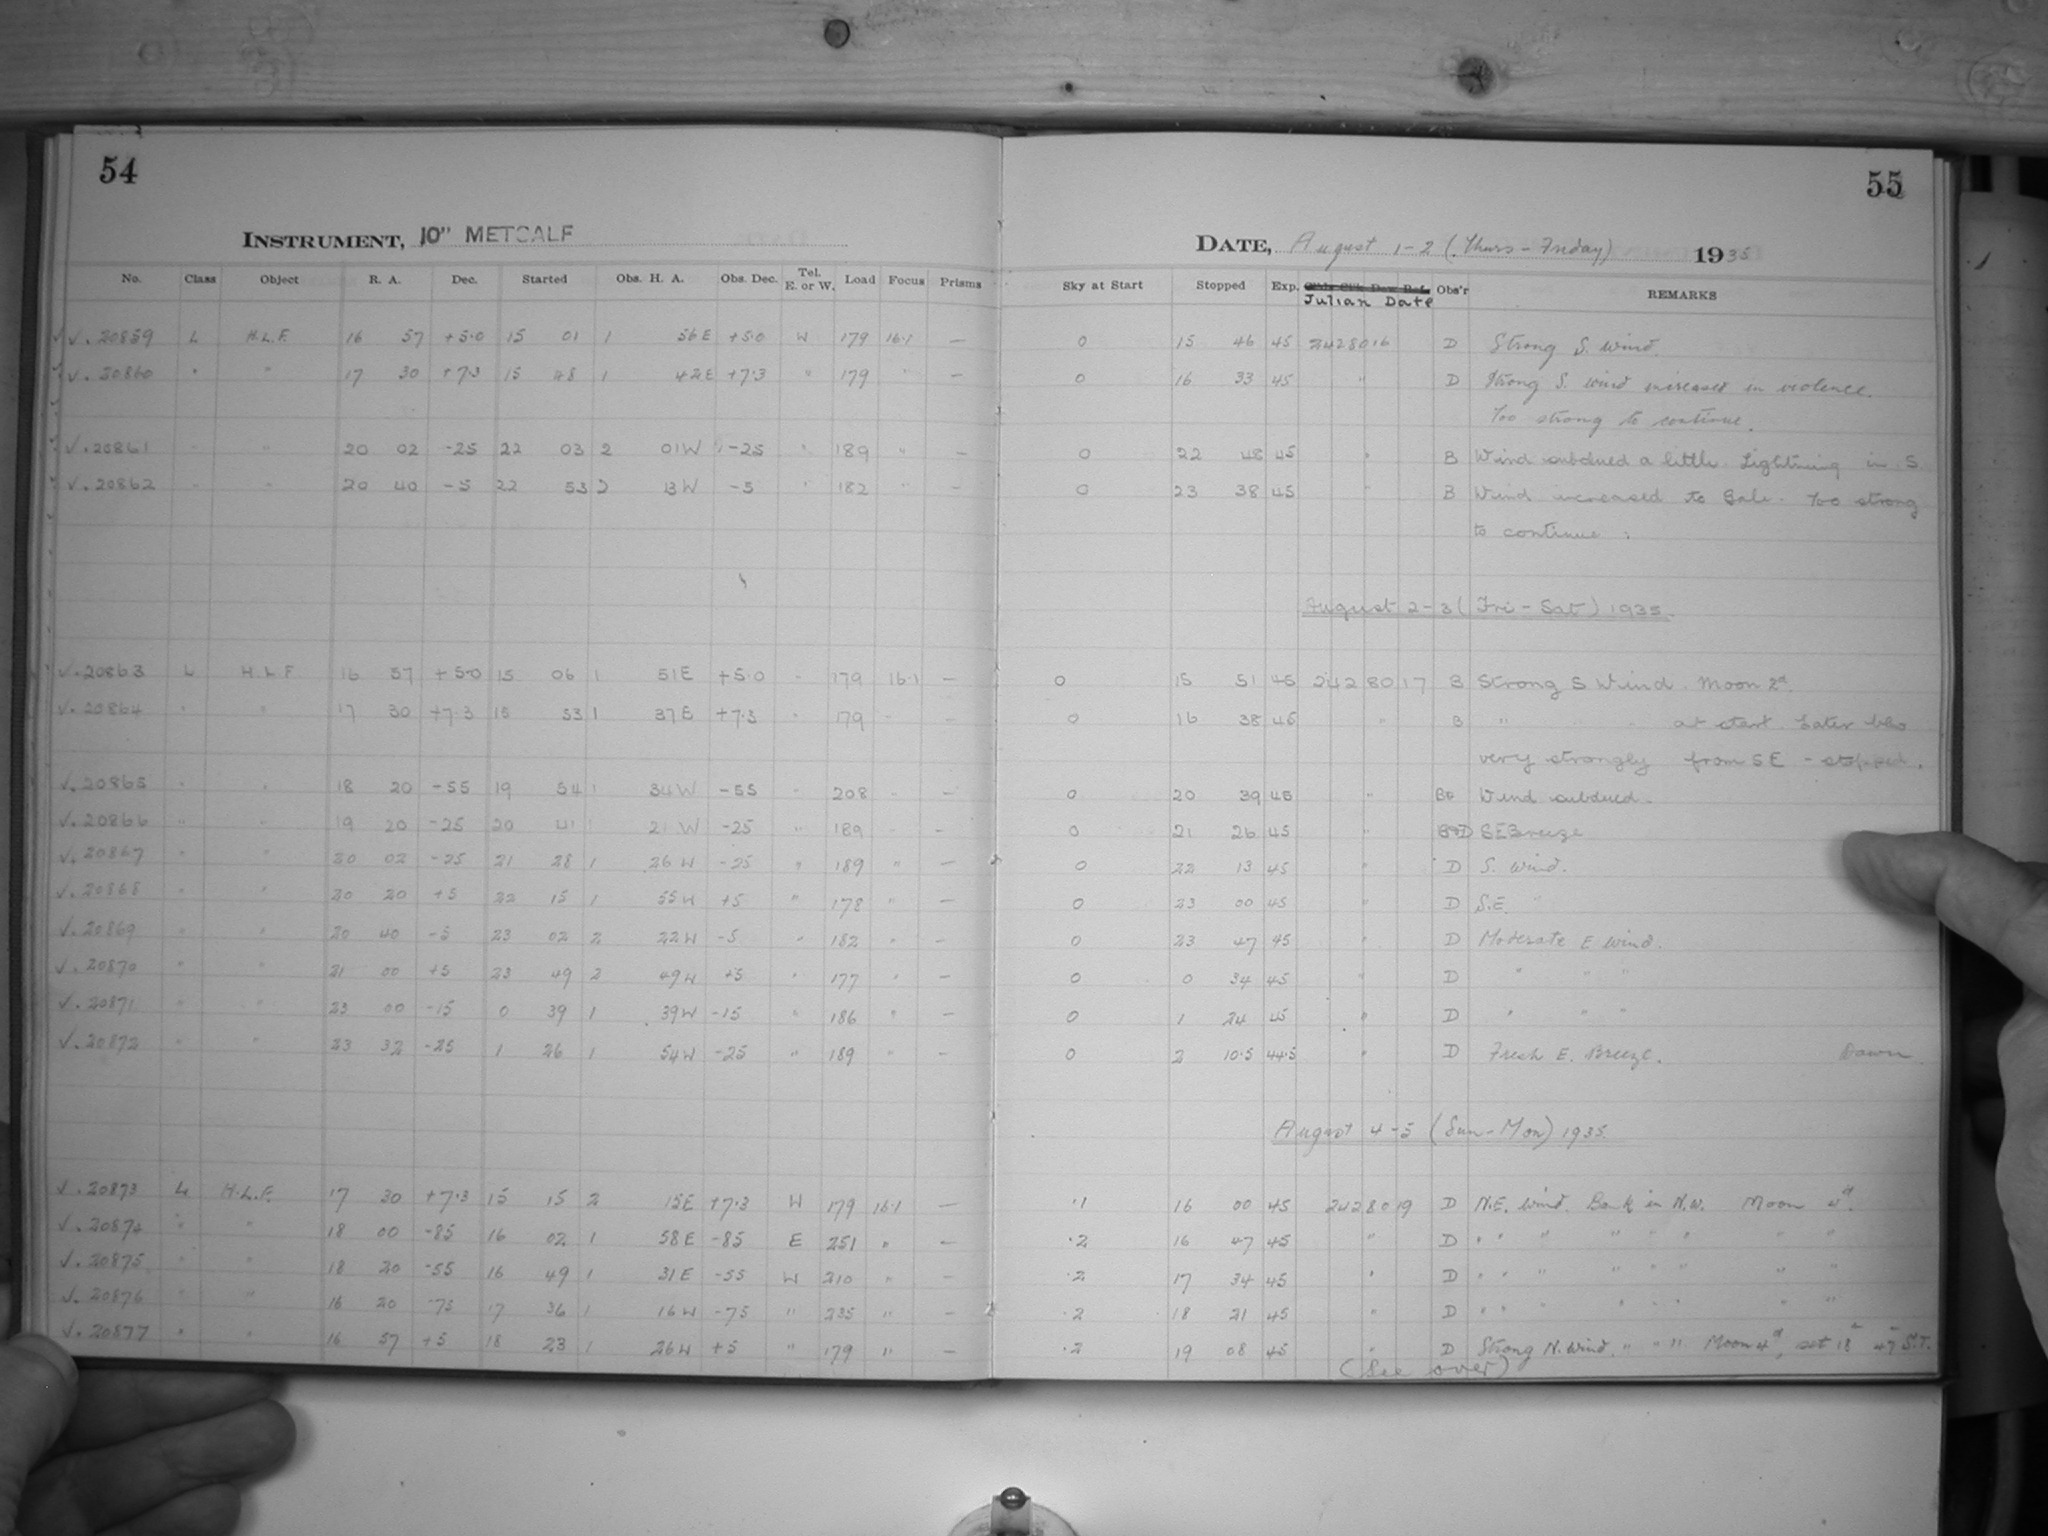 54
INSTRUMENT, 10" METCALF
No. Class Object R. A. Dec. Started Obs. H. A. Obs. Dec. Tel. E. or W. Load Focus Prisms
√ √. 20859 L H.L.F. 16 57 +5.0 15 01 1 56E +5.0 W 179 16.1 —
√. 20860 " " 17 30 +7.3 15 48 1 42E +7.3 " 179 " —
√. 20861 " " 20 02 -25 22 03 2 01W -25 " 189 " —
√. 20862 " " 20 40 -5 22 53 2 13W -5 " 182 " —
√. 20863 L H.L.F 16 57 +5.0 15 06 1 51E +5.0 " 179 16.1 —
√. 20864 " " 17 30 +7.3 15 53 1 37E +7.3 " 179 " —
√. 20865 " " 18 20 -55 19 54 1 34W -55 " 208 " —
√. 20866 " " 19 20 -25 20 41 1 21W -25 " 189 " —
√. 20867 " " 20 02 -25 21 28 1 26W -25 " 189 " —
√. 20868 " " 20 20 +5 22 15 1 55W +5 " 178 " —
√. 20869 " " 20 40 -5 23 02 2 22W -5 " 182 " —
√. 20870 " " 21 00 +5 23 49 2 49W +5 " 177 " —
√. 20871 " " 23 00 -15 0 39 1 39W -15 " 186 " —
√. 20872 " " 23 32 -25 1 26 1 54W -25 " 189 " —
√. 20873 L H.L.F. 17 30 +7.3 15 15 2 15E +7.3 W 179 16.1 —
√. 20874 " " 18 00 -85 16 02 1 58E -85 E 251 " —
√. 20875 " " 18 20 -55 16 49 1 31E -55 W 210 " —
√. 20876 " " 16 20 -75 17 36 1 16W -75 " 235 " —
√. 20877 " " 16 57 +5 18 23 1 26W +5 " 179 " —
55
DATE, August 1-2 (Thurs - Friday) 1935
Sky at Start Stopped Exp. Julian Date Obs'r REMARKS
0 15 46 45 2428016 D Strong S. wind.
0 16 33 45 " D Strong S. wind increased in violence.
Too strong to continue.
0 22 48 45 " B Wind subdued a little. Lightning in S
0 23 38 45 " B Wind increased to Gale. Too strong
to continue.
August 2-3 (Fri - Sat) 1935.
0 15 51 45 2428017 B Strong S Wind. Moon 2d.
0 16 38 45 " B " at start. Later
very strongly from SE - stopped.
0 20 39 45 " Wind subdued.
0 21 26 45 " S E Breeze
0 22 13 45 " D S. wind.
0 23 00 45 " D S.E. "
0 23 47 45 " D Moderate E wind.
0 0 34 45 " D " " "
0 1 24 45 " D " " "
0 2 10.5 44.5 " D Fresh E. Breeze. Dawn
August 4-5 (Sun - Mon) 1935.
.1 16 00 45 2428019 D N.E. wind. Bank in N.W. Moon 4d.
.2 16 47 45 " D " " " " " " " "
.2 17 34 45 " D " " " " " " " "
.2 18 21 45 " D " " " " " " " "
.2 19 08 45 " D Strong N. wind. " " " Moon 4d, set 18h 47m S.T.
(See over)